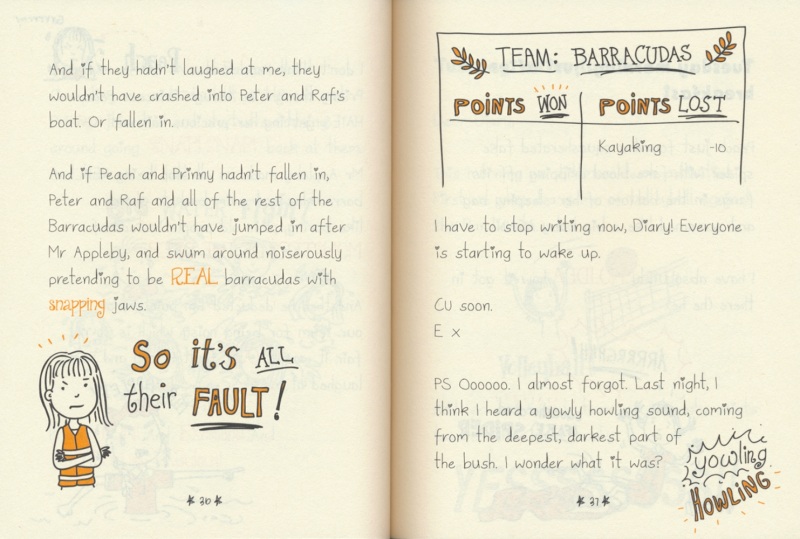 And if they hadn't laughed at me, they
wouldn't have crashed into Peter and Raf's
boat. Or fallen in.
And if Peach and Prinny hadn't fallen in,
Peter and Raf and all of the rest of the
Barracudas wouldn't have jumped in after
Mr Appleby, and swum around noiserously
pretending to be REAL barracudas with
snapping jaws.
So it's ALL
their FAULT!
36
TEAM: BARRACUDAS
POINTS WON POINTS LOST
Kayaking -10
I have to stop writing now, Diary! Everyone
is starting to wake up.
CU soon.
E x
PS Oooooo. I almost forgot. Last night, I
think I heard a yowly howling sound, coming
from the deepest, darkest part of
the bush. I wonder what it was?
yowling
HOWLING
37